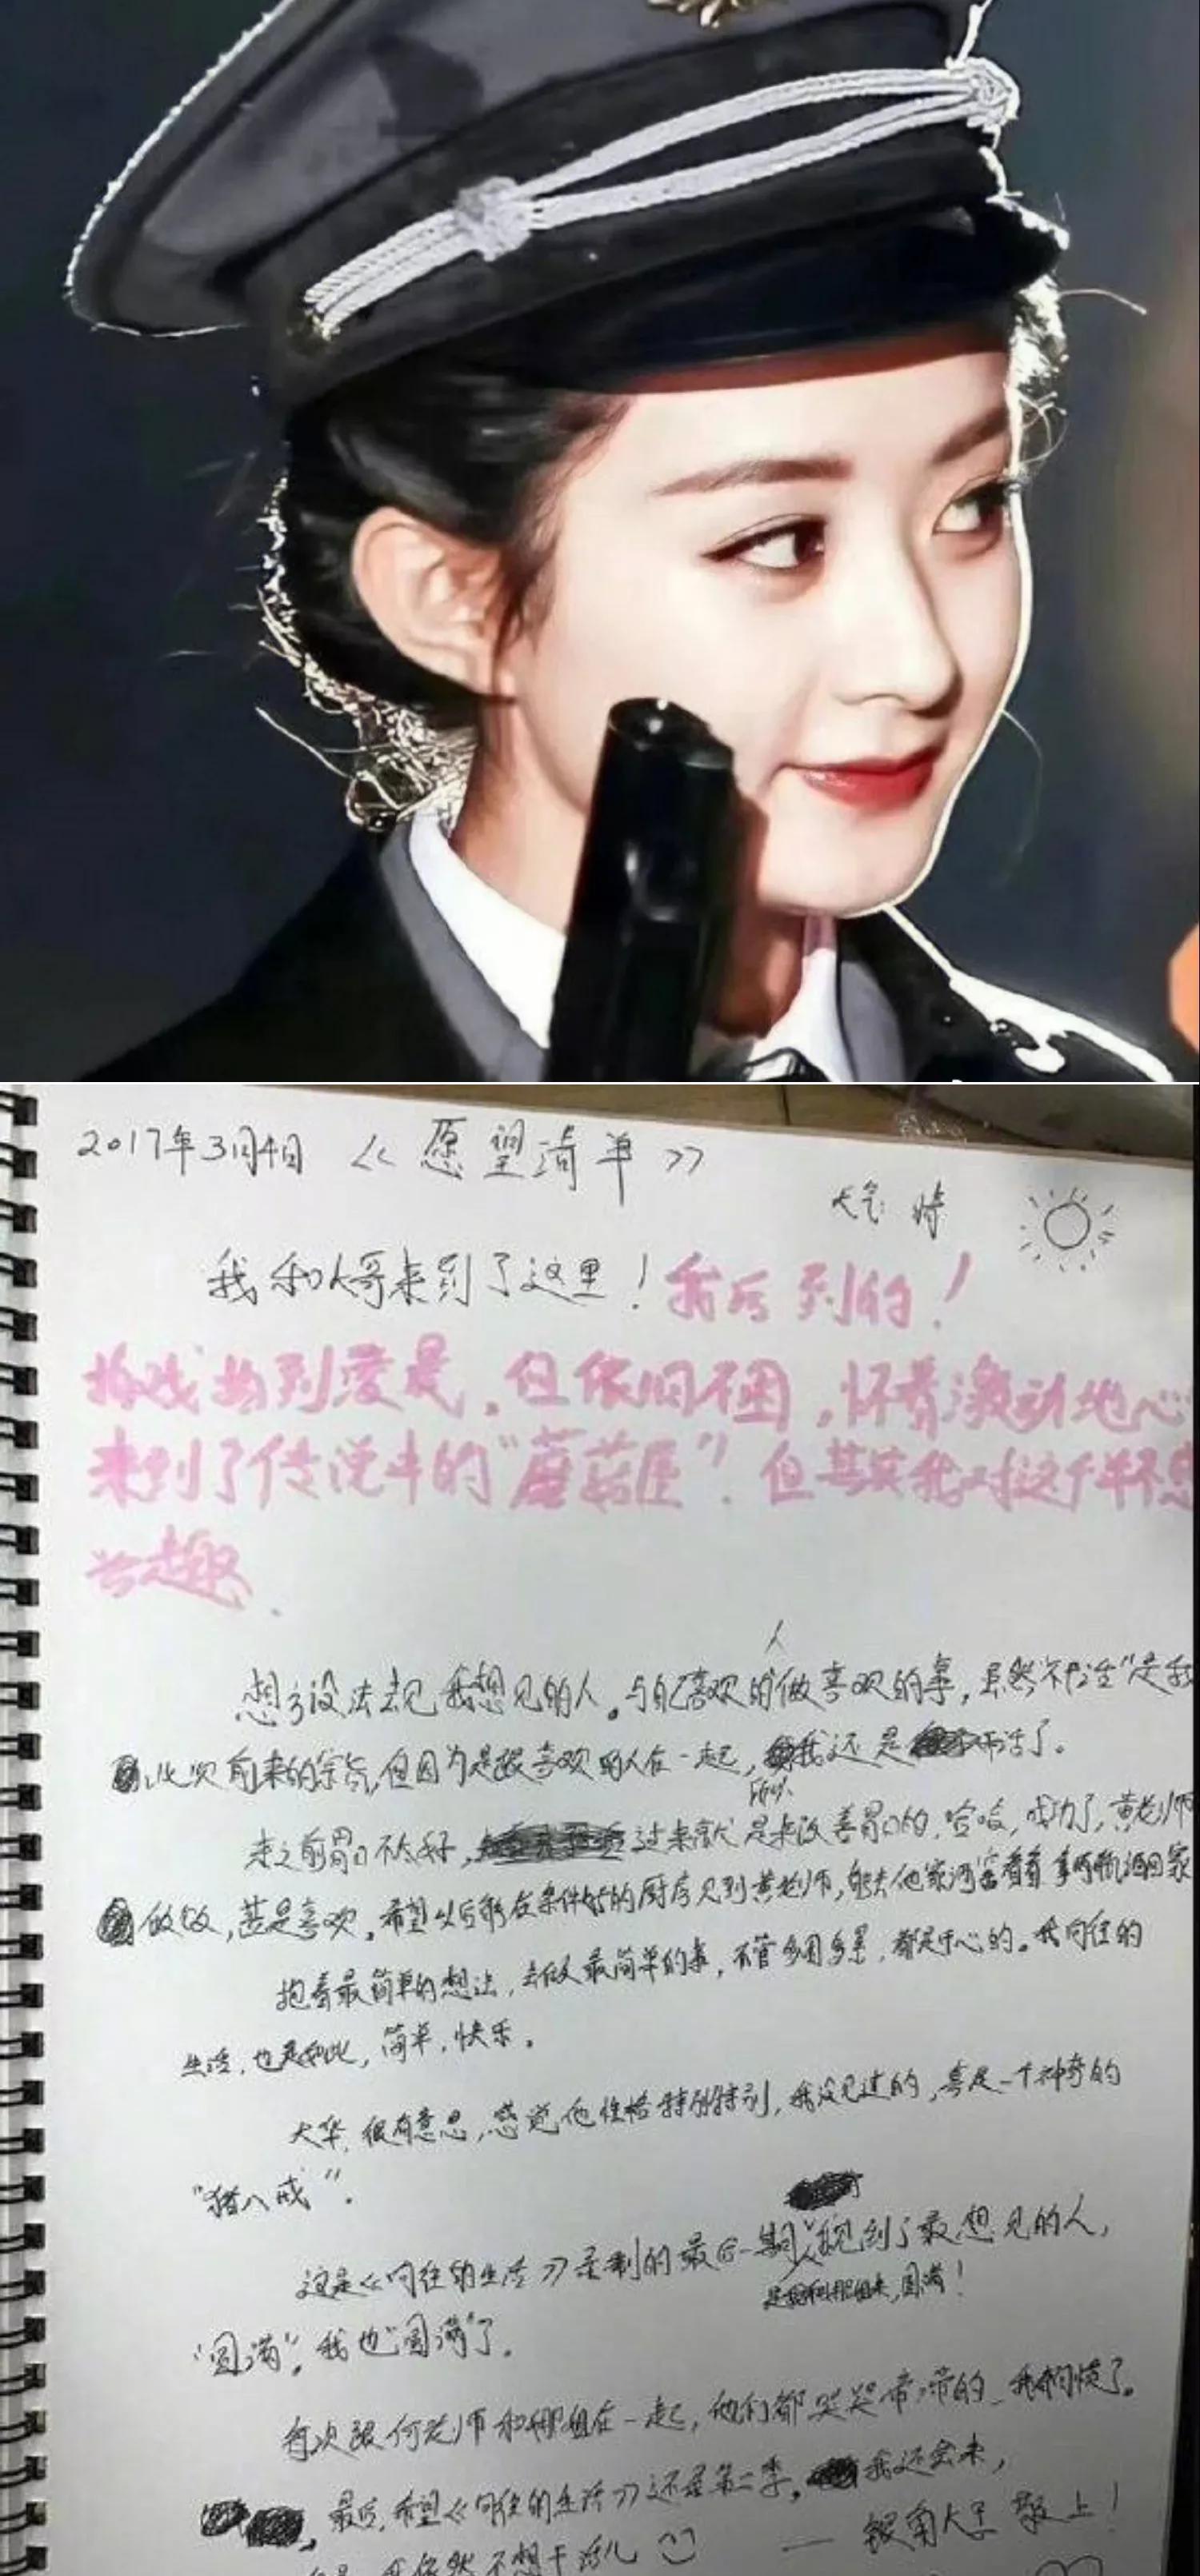 2017年3月4日 《愿望清单》
天气 晴
我和大哥来到了这里！我后到的！
拍戏拍到凌晨，但依旧不困，怀着激动地心
来到了传说中的“蘑菇屋”．但其实我对这个并不感
兴趣．
人
想方设法去见我想见的人。与自己喜欢的做喜欢的事，虽然“不干活”是我
此次前来的宗旨，但因为是跟喜欢的人在一起，我还是干活了。
所以
来之前胃口不太好，过来就是来改善胃口的．哈哈，成功了，黄老师
做饭，甚是喜欢．希望以后能在条件好的厨房见到黄老师，能去他家酒窖看看拿两瓶酒回家
抱着最简单的想法，去做最简单的事，不管多困多累，都是开心的。我向往的
生活，也是如此，简单，快乐。
大华，很有意思，感觉他性格特别特别，我没见过的，真是一个神奇的
“猪八戒”．
这是《向往的生活》录制的最后一期，我见到了最想见的人，
圆满！
“圆满”，我也“圆满”了．
每次跟何老师和娜姐在一起，他们都哭哭啼啼的
最后，希望《向往的生活》还是第二季，我还会来，
我依然不想干活儿
——银角大王 敬上！